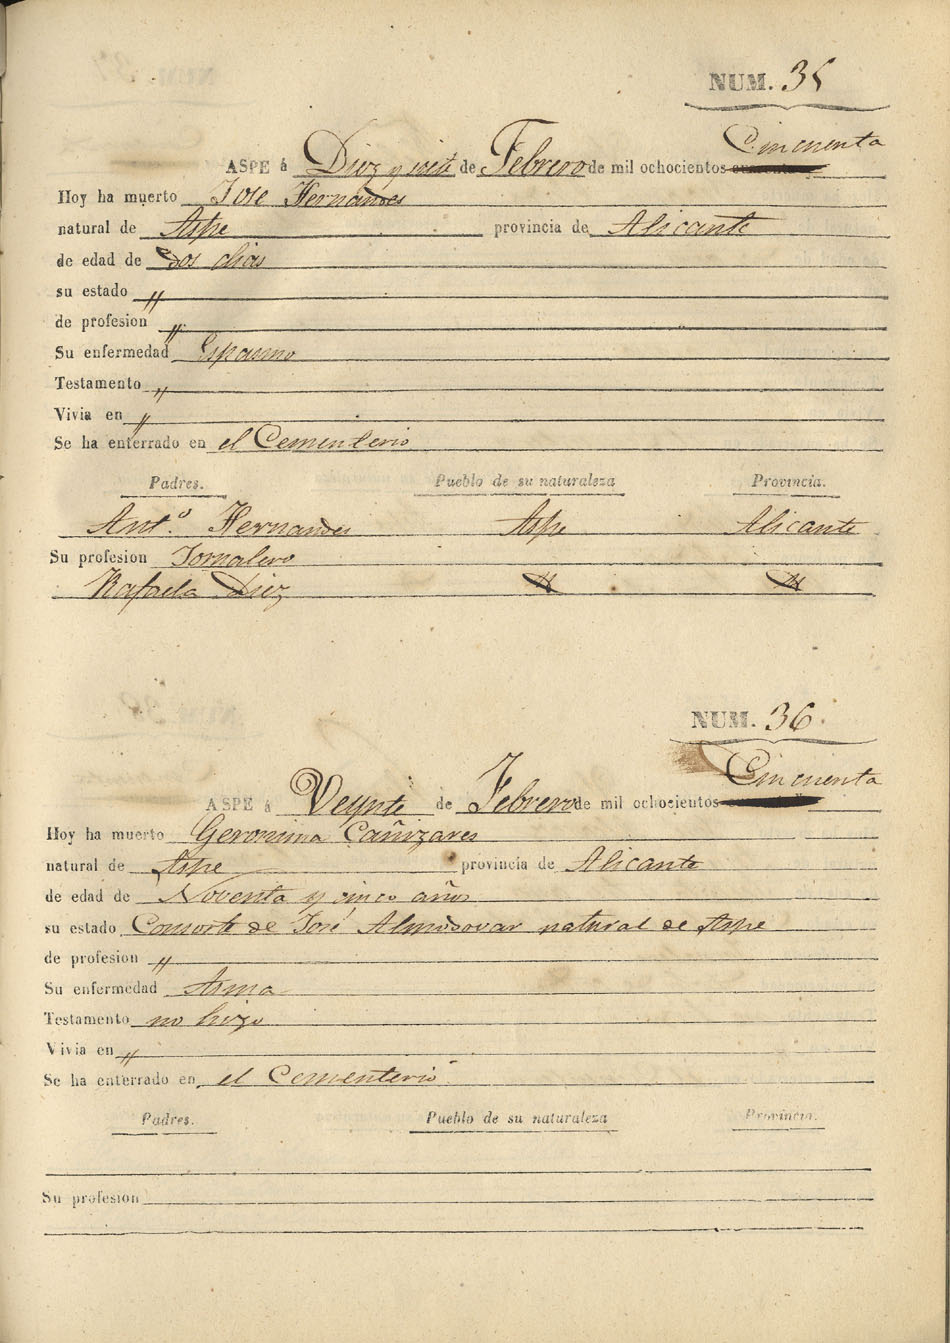 NUM. 35
Cincuenta
ASPE á Diez y siete de Febrero de mil ochocientos
Hoy ha muerto Jose Hernandes
natural de Aspe provincia de Alicante
de edad de dos dias
su estado "
de profesion "
Su enfermedad Espasmo
Testamento "
Vivia en "
Se ha enterrado en el Cementerio
Padres. Pueblo de su naturaleza Provincia.
Ant.º Hernandes Aspe Alicante
Su profesion Jornalero
Rafaela Diez " "
NUM. 36.
Cincuenta
ASPE á Veynte de Febrero de mil ochocientos
Hoy ha muerto Geronima Cañizares
natural de Aspe provincia de Alicante
de edad de Noventa y cinco años
su estado Consorte de José Almodovar natural de Aspe
de profesion "
Su enfermedad Asma
Testamento no hizo
Vivia en "
Se ha enterrado en el Cementerio
Padres. Pueblo de su naturaleza Provincia.
Su profesion